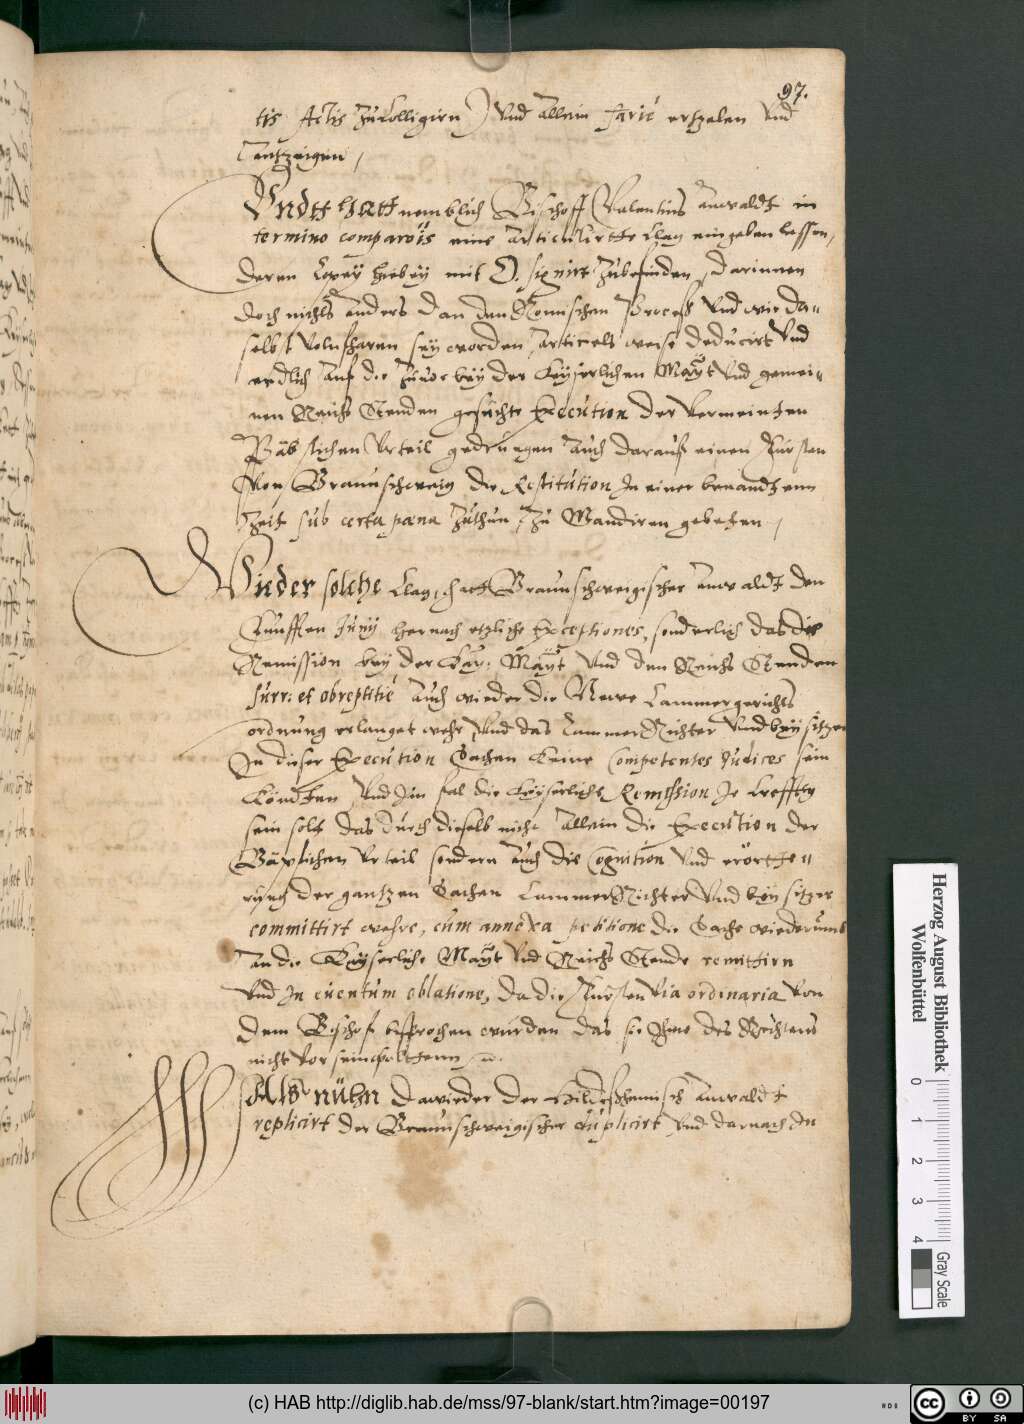 97.
tis Actis zu Colligirn) Vnd allein facie ertzelen vnd
antzeigen,
Vndtt hatt nemblich Bischoff Valentins anwaldt in
termino comparois eine articulirtte Clag eingeben lassen,
deren Copey hiebey mit O. signirt zubefinden, darinnen
doch nichts anders dan den Romischen Proceß vnd wie da=
selbst volnfharen sey worden, articels weise deducirt vnd
endlich auf die zuuor bey der Keyserlichen Maÿt vnd gemei=
nen Reichs Stenden gesuchte Execution der vermeinten
Bäbstlichen Vrteil gedrungen auch darauß einen Fürsten
von Braunschweig die Restitution In einer benandtenn
Zeit sub certa pæna zuthun, zu Mandiren gebeten,
Wieder solche Clag, hatt Braunschweigischer anwaldt den
Funfften Juny hernach etzliche Exceptiones, sonderlich das die
Remission bey der Kay: Maÿt vnd den Reichs Stenden
surr: et obreptitié auch wieder die Newe Cammergerichts
ordnung erlanget wehr, vnd das Cammer Richter vnd beysitzer
In dieser Execution Sachen keine Competentes Judices sein
köndten, vnd Im fal die Keyserliche Remission Je krefftig
sein solt, das durch dieselb nicht allein die Execution der
Bäpstlichen vrteil sondern auch die Cognition vnd erörtte=
rung der gantzen Sachen Cammer Richter vnd beysitzer
committirt wehre, cum annexa petitione die Sache wiederumb
an die Keyserliche Maÿt vnd Reichs Stende remittirn
vnd In euentum oblatione, da die Fürsten via ordinaria von
dem Bischof besprochen wurden das sie Ihme des Rechtens
nicht vor sein wolttenn
Als nuhn dawieder der Hildeßheimisch anwaldt
replicirt der Braunschweigischer duplicirt vnd darnach In
Herzog August Bibliothek
Wolfenbüttel
0 1 2 3 4
Gray Scale
(c) HAB http://diglib.hab.de/mss/97-blank/start.htm?image=00197
HAB
cc BY SA